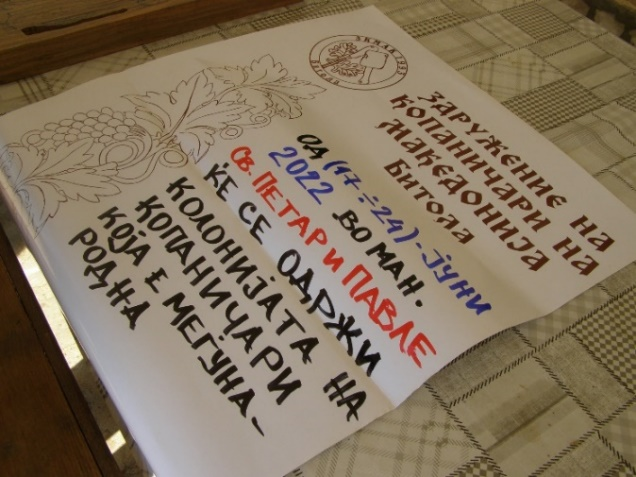 ЗДРУЖЕНИЕ НА
КОПАНИЧАРИ НА
МАКЕДОНИЈА
БИТОЛА
ОД (17÷24)-ЈУНИ
2022 ВО МАН.
СВ. ПЕТАР И ПАВЛЕ
ЌЕ СЕ ОДРЖИ
КОЛОНИЈАТА НА
КОПАНИЧАРИ
КОЈА Е МЕЃУНА-
РОДНА